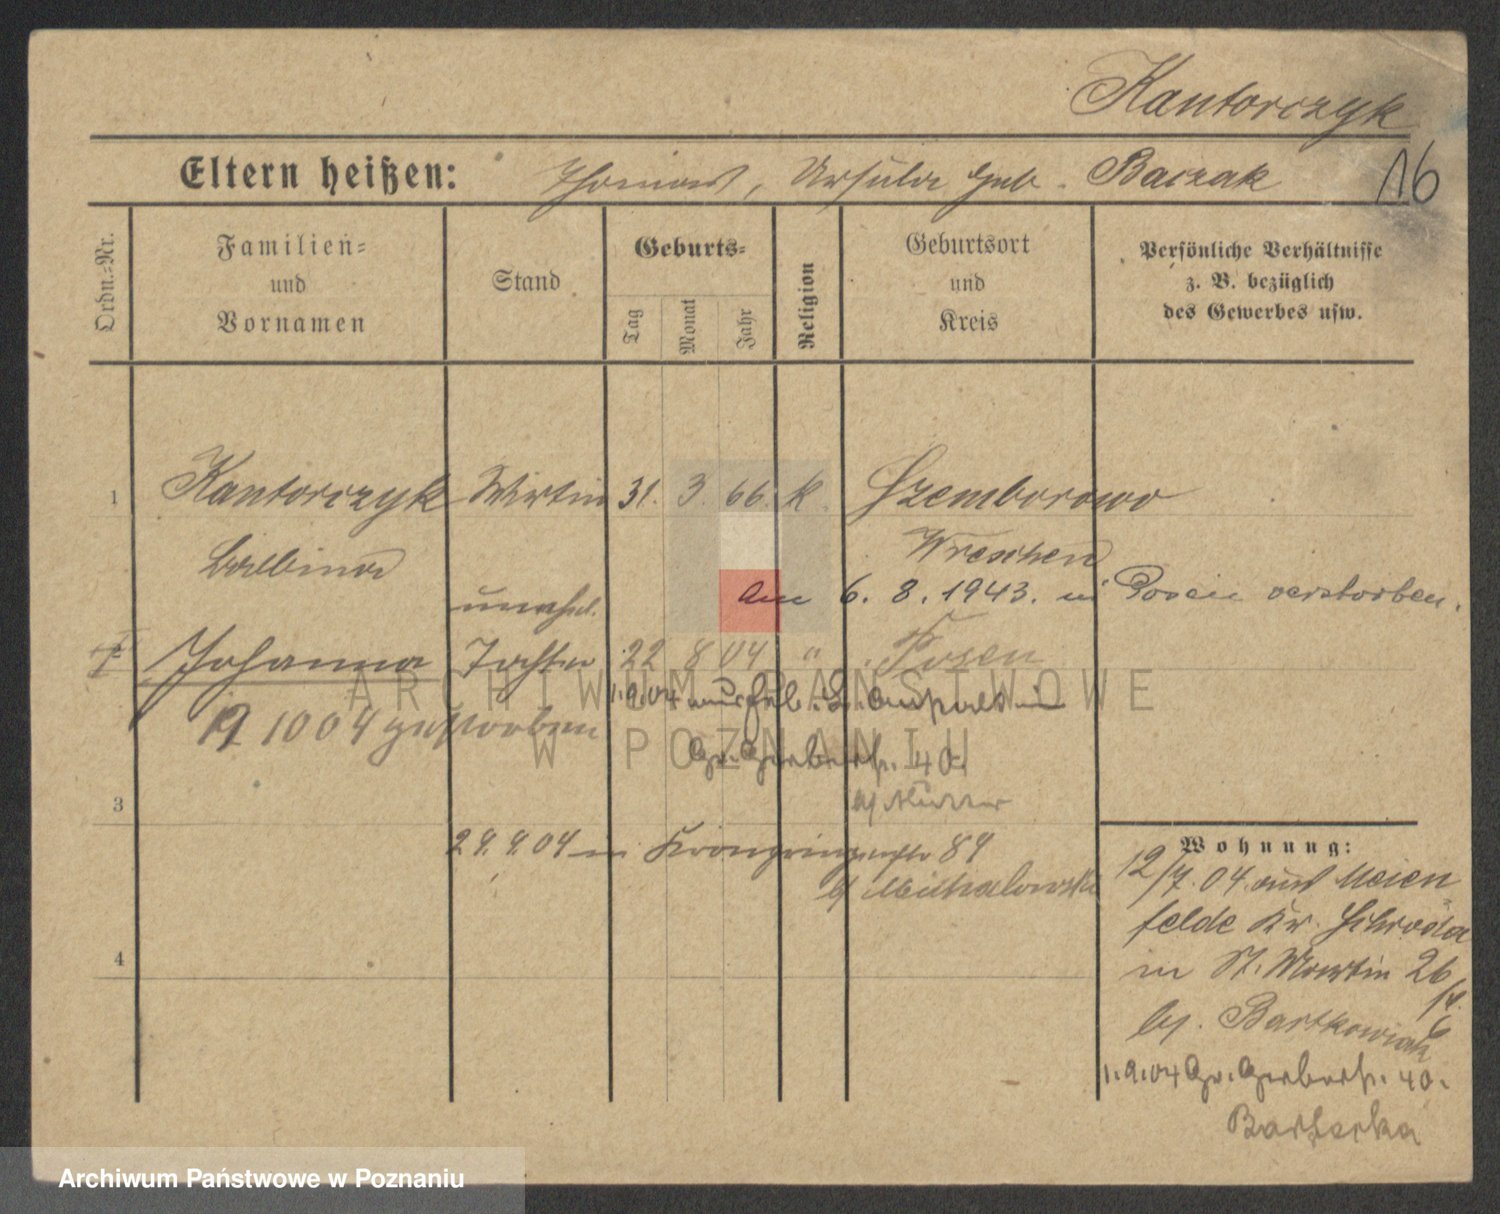 Kantorczyk
Eltern heißen: Thomas, Ursula geb. Baczak
16
Ordn.-Nr.
Familien- und Vornamen
Stand
Geburts-
Tag
Monat
Jahr
Religion
Geburtsort und Kreis
Persönliche Verhältnisse
z. B. bezüglich
des Gewerbes usw.
1 Kantorczyk Wirtin 31. 3. 66. k. Szemborowo
Balbina Wreschen
am 6. 8. 1943. in Posen verstorben.
unehel.
Johanna Tochter 22 8 04 " Posen
1.9.04
19 10 04 gestorben
Gr. Gerberstr. 40.
3
29. 9. 04 in Kronprinzenstr 89
b/ Michalowski
Wohnung:
12/7. 04. aus Meien
felde Kr. Schroda
in St. Martin 26
b/. Bartkowiak
1.9.04 Gr. Gerberstr. 40.
4
ARCHIWUM PAŃSTWOWE
W POZNANIU
Archiwum Państwowe w Poznaniu